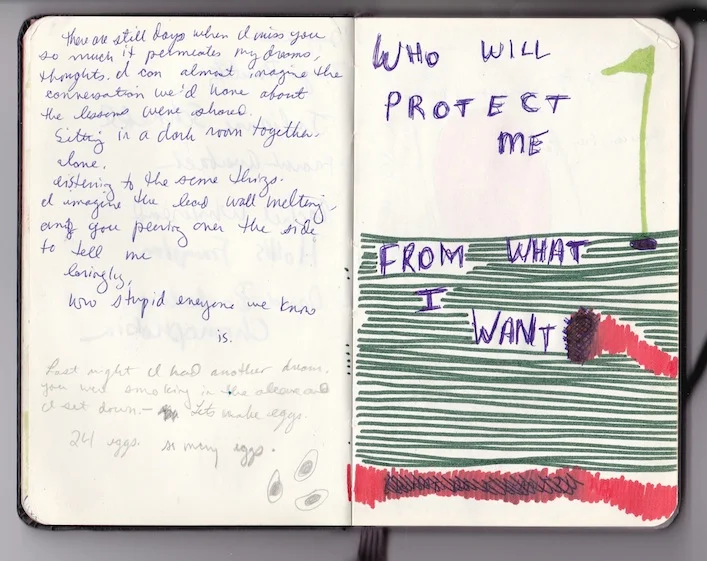 There are still days when I miss you
so much it permeates my dreams,
thoughts. I can almost imagine the
conversation we'd have about
the lessons were shared.
Sitting in a dark room together.
alone.
listening to the same things.
I imagine the lead wall melting,
and you peering over the side
to tell me
lovingly,
how stupid everyone we know
is.
Last night I had another dream.
you were smoking in the and
I sat down — Lets make eggs.
24 eggs. so many eggs.
WHO WILL
PROTECT
ME
FROM WHAT
I
WANT